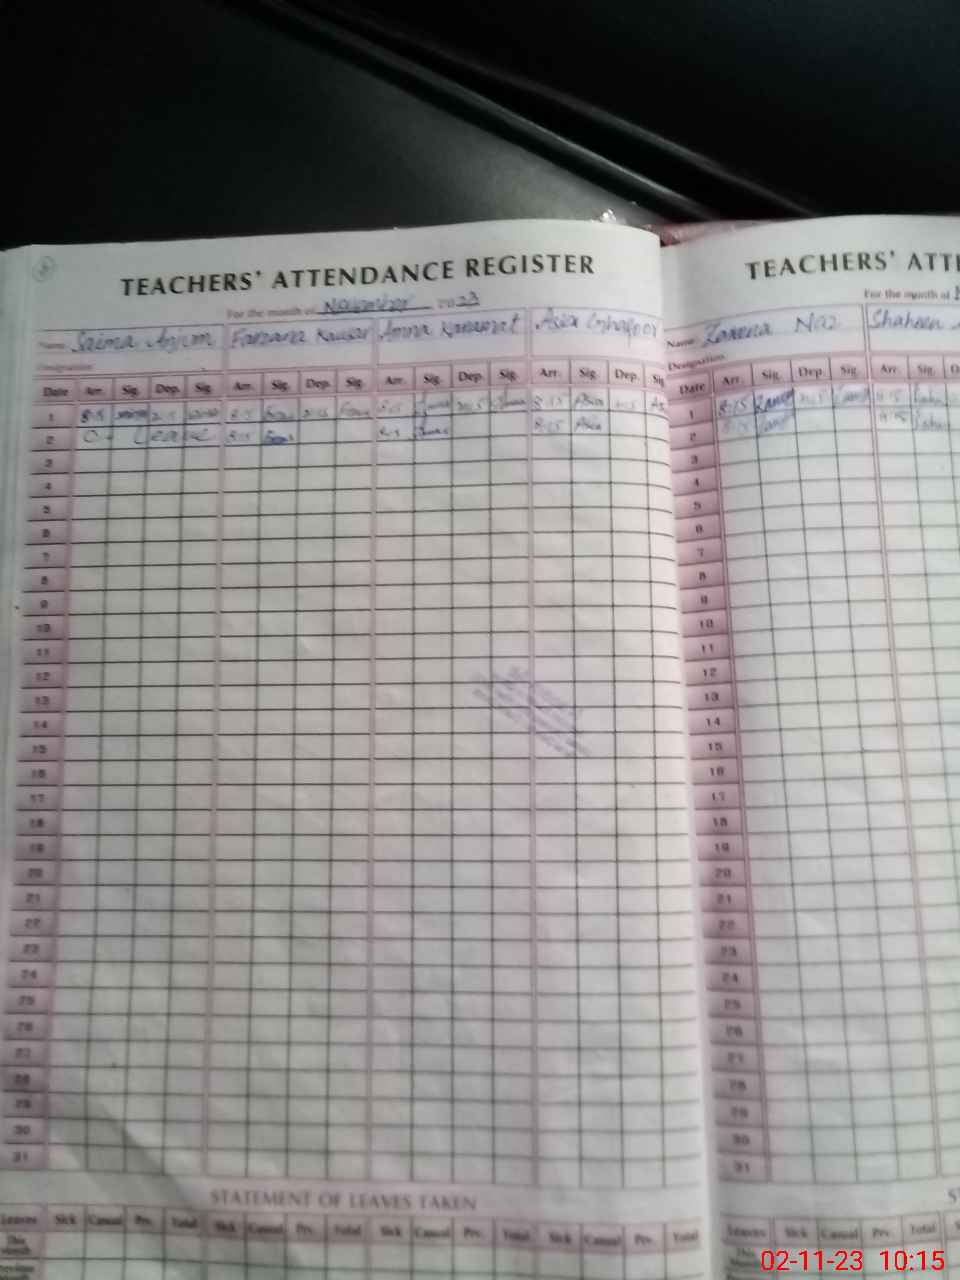 TEACHERS' ATTENDANCE REGISTER
For the month of November 2023
Name Saima Anjum Farzana Kausar Amna Karamat Asia Ghafoor
Designation
Date Arr. Sig. Dep. Sig. Arr. Sig. Dep. Sig. Arr. Sig. Dep. Sig. Arr. Sig. Dep. Sig
1 8:15 2:15 8:15 2:15 8:15 2:15 8:15 Asia
2 On Leave 8:15 8:15 8:15 Asia
3
4
5
6
7
8
9
10
11
12
13
14
15
16
17
18
19
20
21
22
23
24
25
26
27
28
29
30
31
STATEMENT OF LEAVES TAKEN
Leaves Sick Casual Prv. Total Sick Casual Prv. Total Sick Casual Prv. Total Sick Casual Prv. Total
This Month
Previous
TEACHERS' ATTE
For the month of
Name Zareena Naz Shaheen
Designation
Date Arr. Sig. Dep. Sig. Arr. Sig. D
1 8:15
2 8:15
3
4
5
6
7
8
9
10
11
12
13
14
15
16
17
18
19
20
21
22
23
24
25
26
27
28
29
30
31
S
Leaves Sick Casual Prv. Total Sick
This
02-11-23 10:15